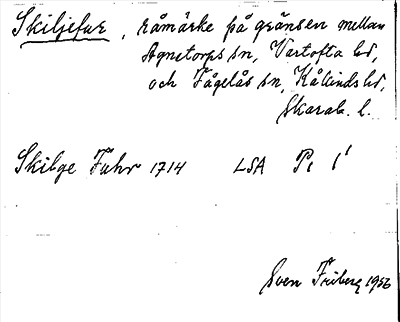 Skiljefur, råmärke på gränsen mellan
Agnetorps sn, Vartofta hd,
och Fågelås sn, Kåkinds hd,
Skarab. l.
Skilge Fuhr 1714 LSA P. 1¹
Sven Friberg 1956